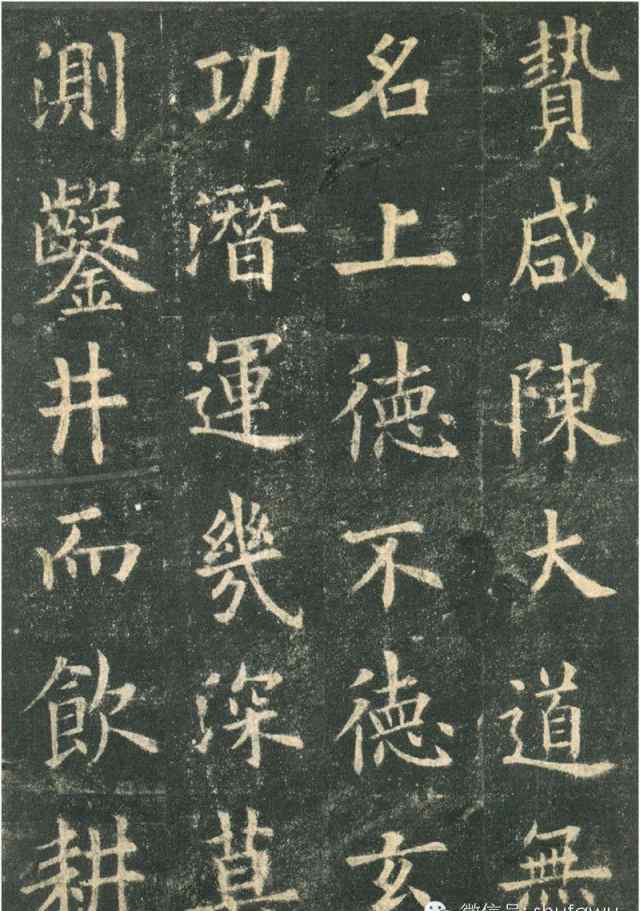 贄咸陳大道無
名上德不德玄
功潛運幾深莫
測鑿井而飲耕
微信号: shufawu